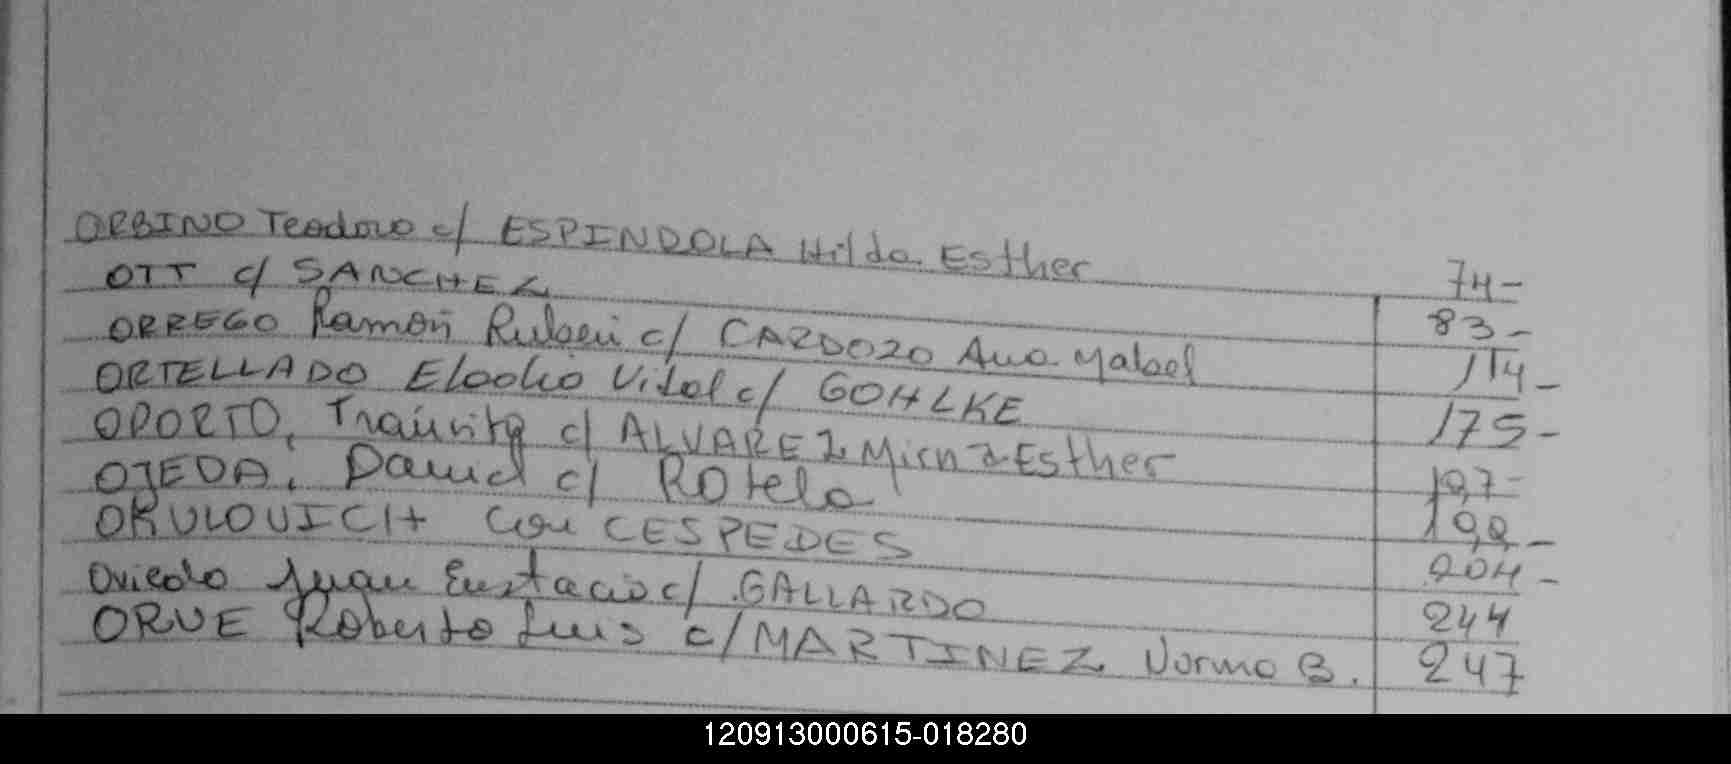 ORBINO Teodoro c/ ESPINDOLA Hilda Esther 74-
OTT c/ SANCHEZ 83-
ORREGO Ramón Rubén c/ CARDOZO Ana Mabel 114-
ORTELLADO Eladio Vidal c/ GOHLKE 175-
OPORTO, c/ ALVAREZ Mirna Esther 197-
OJEDA, David c/ Rotela 199-
ORULOVICH con CESPEDES 204-
Oviedo Juan Eustacio c/ GALLARDO 244
ORUE Roberto Luis c/ MARTINEZ Norma B. 247
120913000615-018280